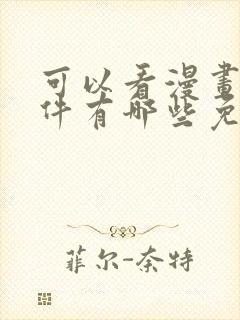 可以看漫畫
件有哪些免
菲尔-奈特